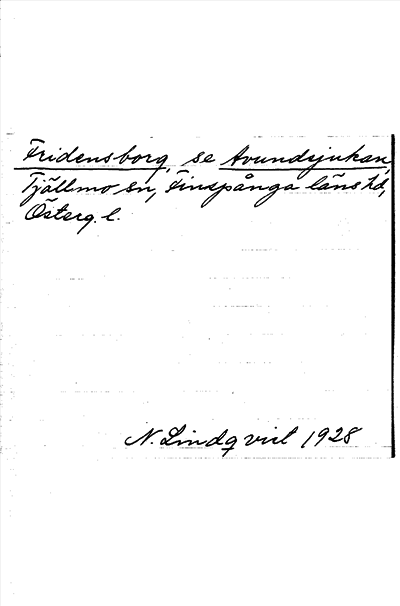 Fridensborg, se Avundsjukan,
Tjällmo sn, Finspånga läns hd,
Österg. l.
N. Lindqvist 1928